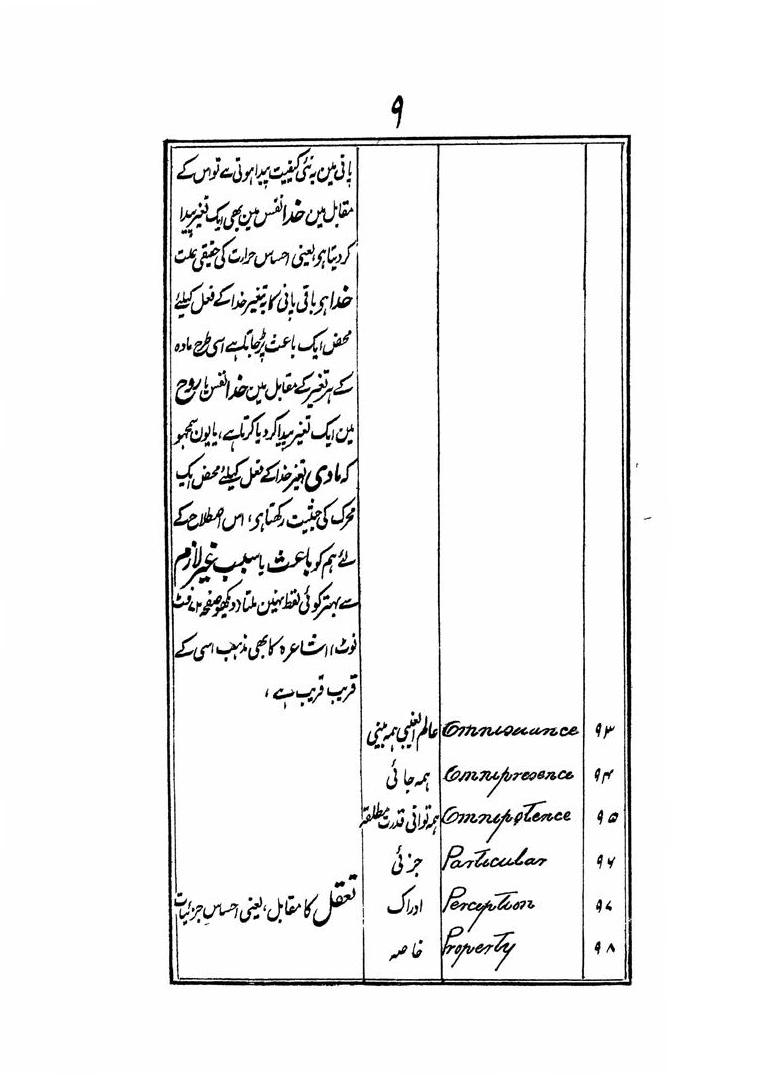 ۹
پانی مین یہ نئی کیفیت پیدا ہوتی ہے تو اس کے
مقابل مین خدا نفس مین بھی ایک تغیر پیدا
کر دیتا ہو، یعنی احساس حرارت کی حقیقی علت
خدا ہو باقی پانی کا یہ تغیر خدا کے فعل کیلئے
محض ایک باعث پڑ جاتا ہے اسی طرح مادہ
کے ہر تغیر کے مقابل مین خدا نفس یا روح
مین ایک تغیر پیدا کر دیا کرتا ہے، یا یون سمجھو
کہ مادی تغیر خدا کے فعل کیلئے محض ایک
محرک کی حیثیت رکھتا ہو، اس اصطلاح کے
لئے ہم کو باعث یا سبب غیر لازم
سے بہتر کوئی لفظ نہین ملتا (دیکھو صفحہ فٹ
نوٹ) اشاعرہ کا بھی مذہب اسی کے
قریب قریب ہے،
۹۳ Omniscience عالم الغیبی ہمہ بینی
۹۴ Omnipresence ہمہ جائی
۹۵ Omnipotence ہمہ توانی قدرت مطلقہ
۹۶ Particular جزئی
۹۷ Perception ادراک تعقل کا مقابل، یعنی احساسِ جزئیات
۹۸ Property خاصہ